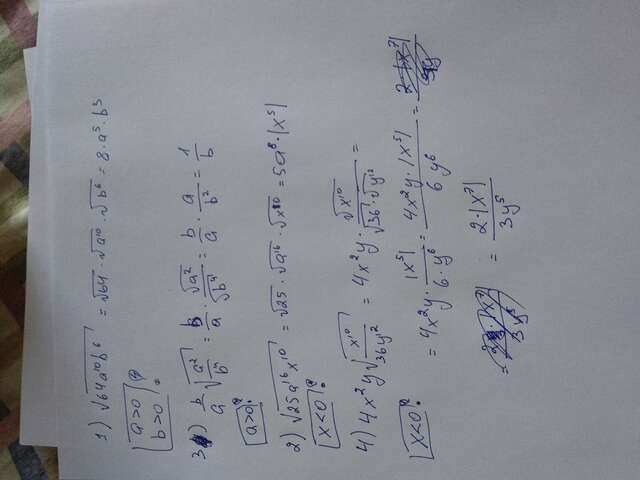 1) √64a¹⁰b⁶ = √64 · √a¹⁰ · √b⁶ = 8 · a⁵ · b³
a>0
b>0 ?
3) b/a √a²/b⁴ = b/a · √a²/√b⁴ = b/a · a/b² = 1/b
a>0 ?
2) √25a¹⁶x¹⁰ = √25 · √a¹⁶ · √x¹⁰ = 5a⁸ · |x⁵|
x<0 ?
4) 4x²y √x¹⁰/36y¹² = 4x²y · √x¹⁰/√36 · √y¹² =
x<0 ?
= 4x²y · |x⁵|/6 · y⁶ = 4x²y · |x⁵|/6y⁶ =
= = 2 · |x⁷|/3y⁵